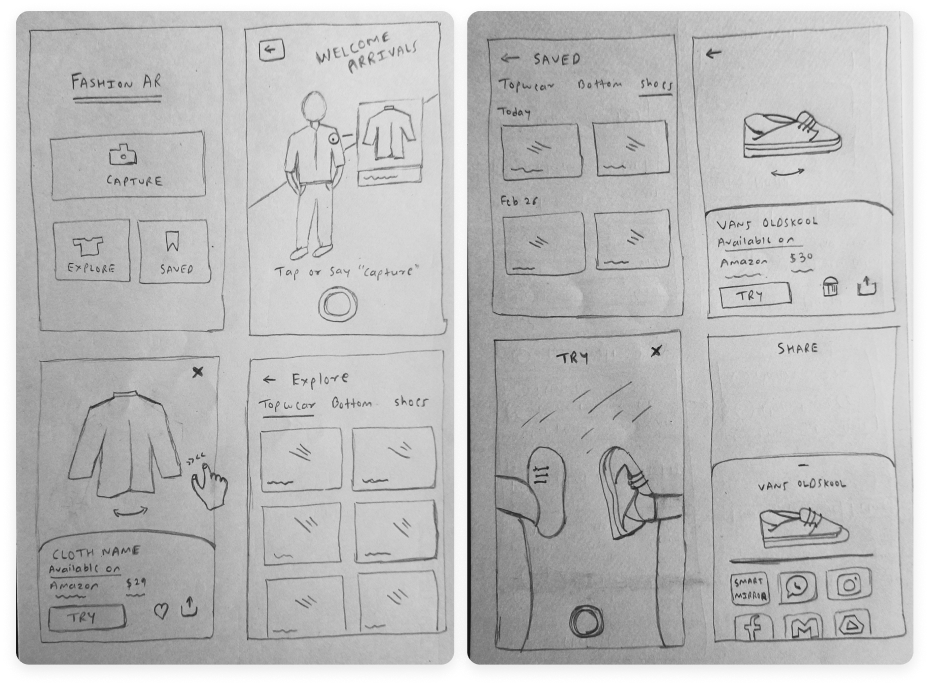 FASHION AR
CAPTURE
EXPLORE
SAVED
WELCOME
ARRIVALS
Tap or say "capture"
CLOTH NAME
Available on
Amazon $29
TRY
← Explore
Topwear Bottom shoes
← SAVED
Topwear Bottom shoes
Today
Feb 26
VANS OLDSKOOL
Available on
Amazon $30
TRY
TRY
SHARE
VANS OLDSKOOL
SMART
MIRROR